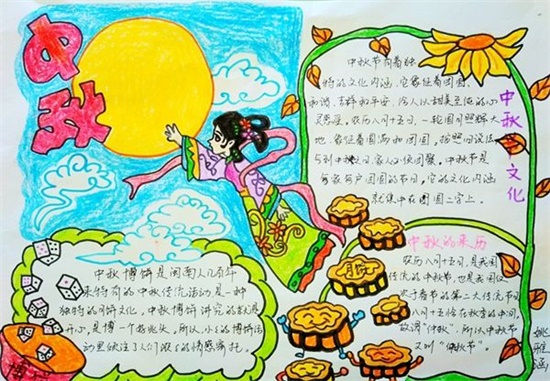 中秋
中秋节有着独
特的文化内涵,它象征着团圆、
和谐、吉祥和平安,给人以甜美的心
灵感应。农历八月十五日,一轮圆月照辉大
地,象征着圆满和团圆,按照旧说法,
每到中秋日,家人必须团聚,中秋节是
每家每户团圆的节日,它的文化内涵
就集中在团圆二字上。
中秋文化
中秋博饼是闽南人几百年
来特有的中秋传统活动,是一种
独特的月饼文化。中秋博饼讲究的就是
开心,是博一个好兆头。所以,小小的博饼活
动里倾注了人们浓浓的情感寄托。
博
中秋的来历
农历八月十五日,是我国
传统的中秋节,也是我国仅
次于春节的第二大传统节日。
八月十五恰在秋季的中间,
故谓“仲秋”,所以中秋节
又叫“仲秋节”。
姚雅涵